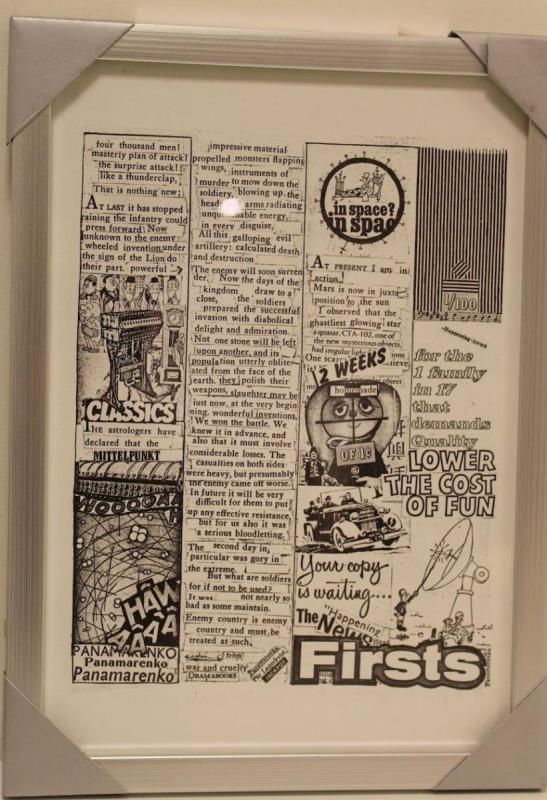 four thousand men!
masterly plan of attack!
the surprise attack!
like a thunderclap,
That is nothing new;
AT LAST it has stopped
raining the infantry could
press forward! Now
unknown to the enemy
wheeled invention under
the sign of the Lion do
their part. powerful
CLASSICS
THE astrologers have
declared that the
MITTELPUNKT
WOOOOA
HÂW
PANAMARENKO
Panamarenko
Panamarenko
impressive material
propelled monsters flapping
wings, instruments of
murder to mow down the
soldiery, blowing up the
arms radiating
energy,
in every disguise,
All this galloping evil
artillery: calculated death
and destruction
The enemy will soon surren
der. Now the days of the
kingdom draw to a
close, the soldiers
prepared the successful
invasion with diabolical
delight and admiration.
Not one stone will be left
upon another, and its
population utterly obliter
ated from the face of the
earth. they polish their
weapons, slaughter may be
just now, at the very begin
ning. wonderful inventions,
We won the battle. We
knew it in advance, and
also that it must involve
considerable losses. The
casualties on both sides
were heavy, but presumably
the enemy came off worse.
In future it will be very
difficult for them to put
up any effective resistance,
but for us also it was
a serious bloodletting.
The second day in
particular was gory in
the extreme.
But what are soldiers
for if not to be used?
It was not nearly so
bad as some maintain.
Enemy country is enemy
country and must be
treated as such.
from
war and cruelty
DRAMABOOKS
in space?
in spac
AT PRESENT I am in
action!
Mars is now in juxta
position to the sun
I observed that the
ghastliest glowing star
a quasar, CTA-102, one of
the new mysterious objects,
had irregular
One
2 WEEKS
homemade
OF 1c
Your copy
is waiting....
The "Happening
News
Firsts
1/100
for the
1 family
in 17
that
demands
Quality
LOWER
THE COST
OF FUN